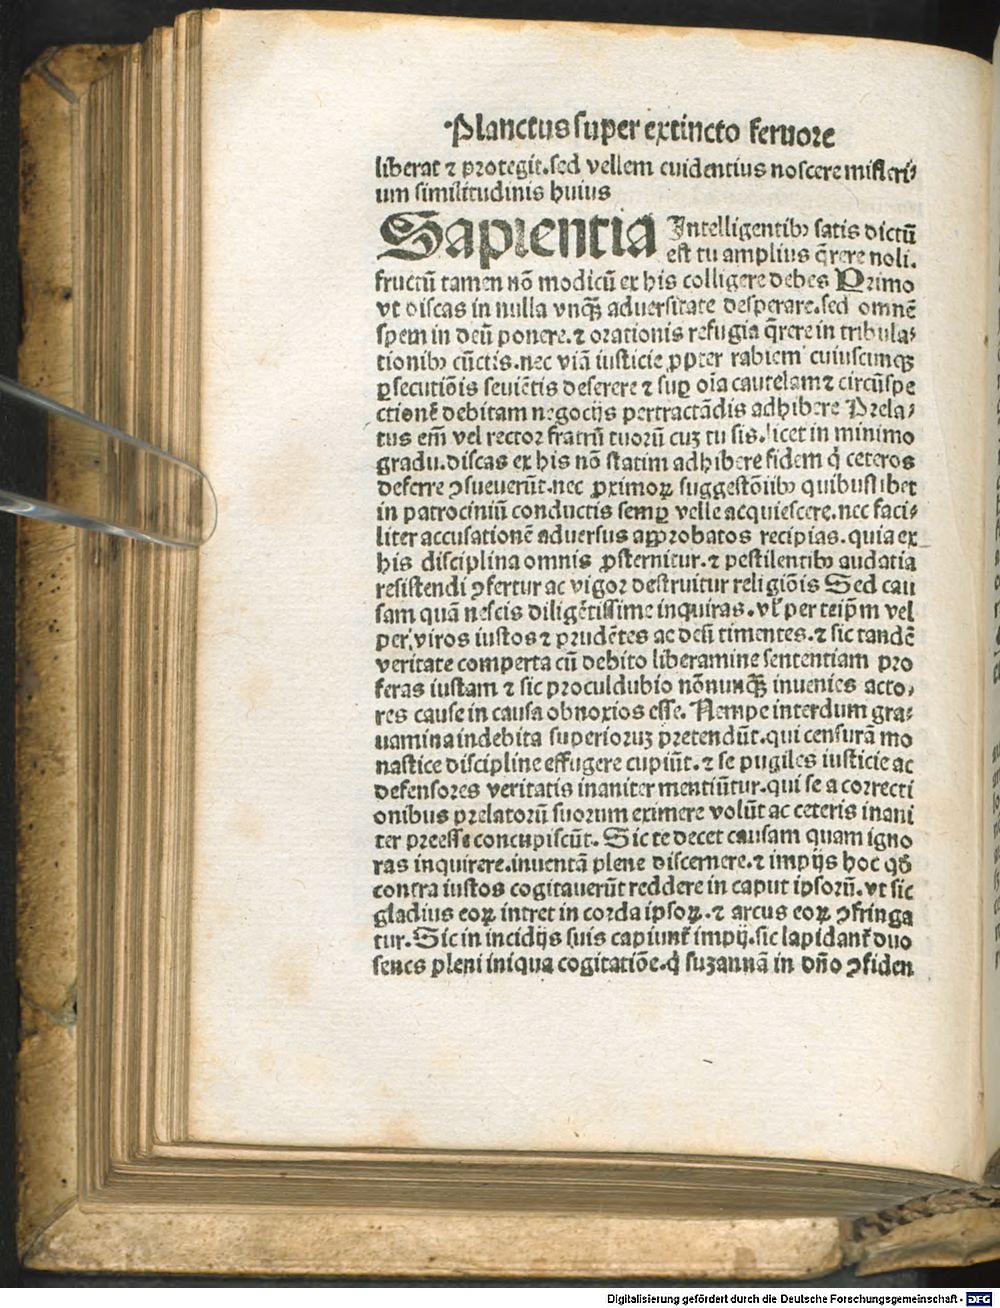 Planctus super extincto feruore
liberat ⁊ protegit.sed vellem euidentius noscere misteri⸗
um similitudinis huius
Sapientia Intelligentibꝫ satis dictū
est tu amplius q̄rere noli.
fructū tamen nō modicū ex his colligere debes Primo
vt discas in nulla vnq̄ꝫ aduersitate desperare.sed omnē
spem in deū ponere.⁊ orationis refugia q̄rere in tribula⸗
tionibꝫ cūctis.nec viā iusticie ꝓpter rabiem cuiuscunqꝫ
ꝑsecutiōis seuiētis deserere ⁊ suꝑ oīa cautelam ⁊ circūspe
ctionē debitam negocijs pertractādis adhibere Prela⸗
tus em̄ vel rector fratrū tuorū cuꝫ tu sis.licet in minimo
gradu.discas ex his nō statim adhibere fidem q̄ ceteros
deferre ꝯsueuerūt.nec ꝓximoꝝ suggestōibꝫ quibuslibet
in patrociniū conductis semꝑ velle acquiescere.nec faci⸗
liter accusationē aduersus approbatos recipias.quia ex
his disciplina omnis ꝓsternitur.⁊ pestilentibꝫ audatia
resistendi ꝯfertur ac vigor destruitur religiōis Sed cau
sam quā nescis diligētissime inquiras.vl̓ per teip̄m vel
per viros iustos ⁊ prudētes ac deū timentes.⁊ sic tandē
veritate comperta cū debito liberamine sententiam pro
feras iustam ⁊ sic proculdubio nōnunq̄ꝫ inuenies acto⸗
res cause in causa obnoxios esse. Nempe interdum gra⸗
uamina indebita superioruꝫ pretendūt.qui censurā mo
nastice discipline effugere cupiūt.⁊ se pugiles iusticie ac
defensores veritatis inaniter mentiūtur.qui se a correcti
onibus prelatorū suorum eximere volūt ac ceteris inani
ter preesse concupiscūt. Sic te decet causam quam igno
ras inquirere.inuentā plene discernere.⁊ impijs hoc qđ
contra iustos cogitauerūt reddere in caput ipsorū.vt sic
gladius eoꝝ intret in corda ipsoꝝ.⁊ arcus eoꝝ ꝯfringa
tur. Sic in incidijs suis capiunt̄ impij.sic lapidant̄ duo
senes pleni iniqua cogitatiōe.q̄ suzannā in dn̄o ꝯfiden
Digitalisierung gefördert durch die Deutsche Forschungsgemeinschaft - DFG